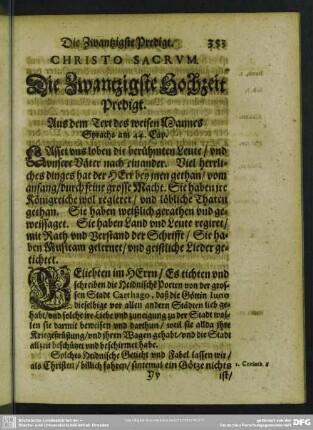 Die Zwantzigste Predigt. 353
CHRISTO SACRVM.
Die Zwantzigste Hochzeit
Predigt.
Aus dem Text des weisen Mannes
Syrachs am 44. Cap.
LAsset vns loben die berühmten Leute / vnd
vnsere Väter nach einander. Viel herrli-
ches dinges hat der HErr bey jnen gethan / vom
anfang / durch seine grosse Macht. Sie haben jre
Königreiche wol regieret / vnd löbliche Thaten
gethan. Sie haben weißlich gerathen vnd ge-
weissaget. Sie haben Land vnd Leute regiret /
mit Rath vnd Verstand der Schrifft / Sie ha-
ben Musicam gelernet / vnd geistliche Lieder ge-
tichtet.
GEliebten im HErrn / Es tichten vnd
schreiben die Heidnische Poeten von der gros-
sen Stadt Carthago, daß die Göttin Iuno
dieselbige vor allen andern Städten lieb ge-
habt / vnd solche jre Liebe vnd zuneigung zu der Stadt wol-
len sie darmit beweisen vnd darthun / weil sie allda jhre
Kriegsrüstung / vnd jhren Wagen gehabt / vnd die Stadt
allzeit beschützet vnd beschirmet habe.
Solches Heidnische Geticht vnd Fabel lassen wir /
als Christen / billich fahren / sintemal ein Götze nichts
1. Corinth. 8
Yy ist /